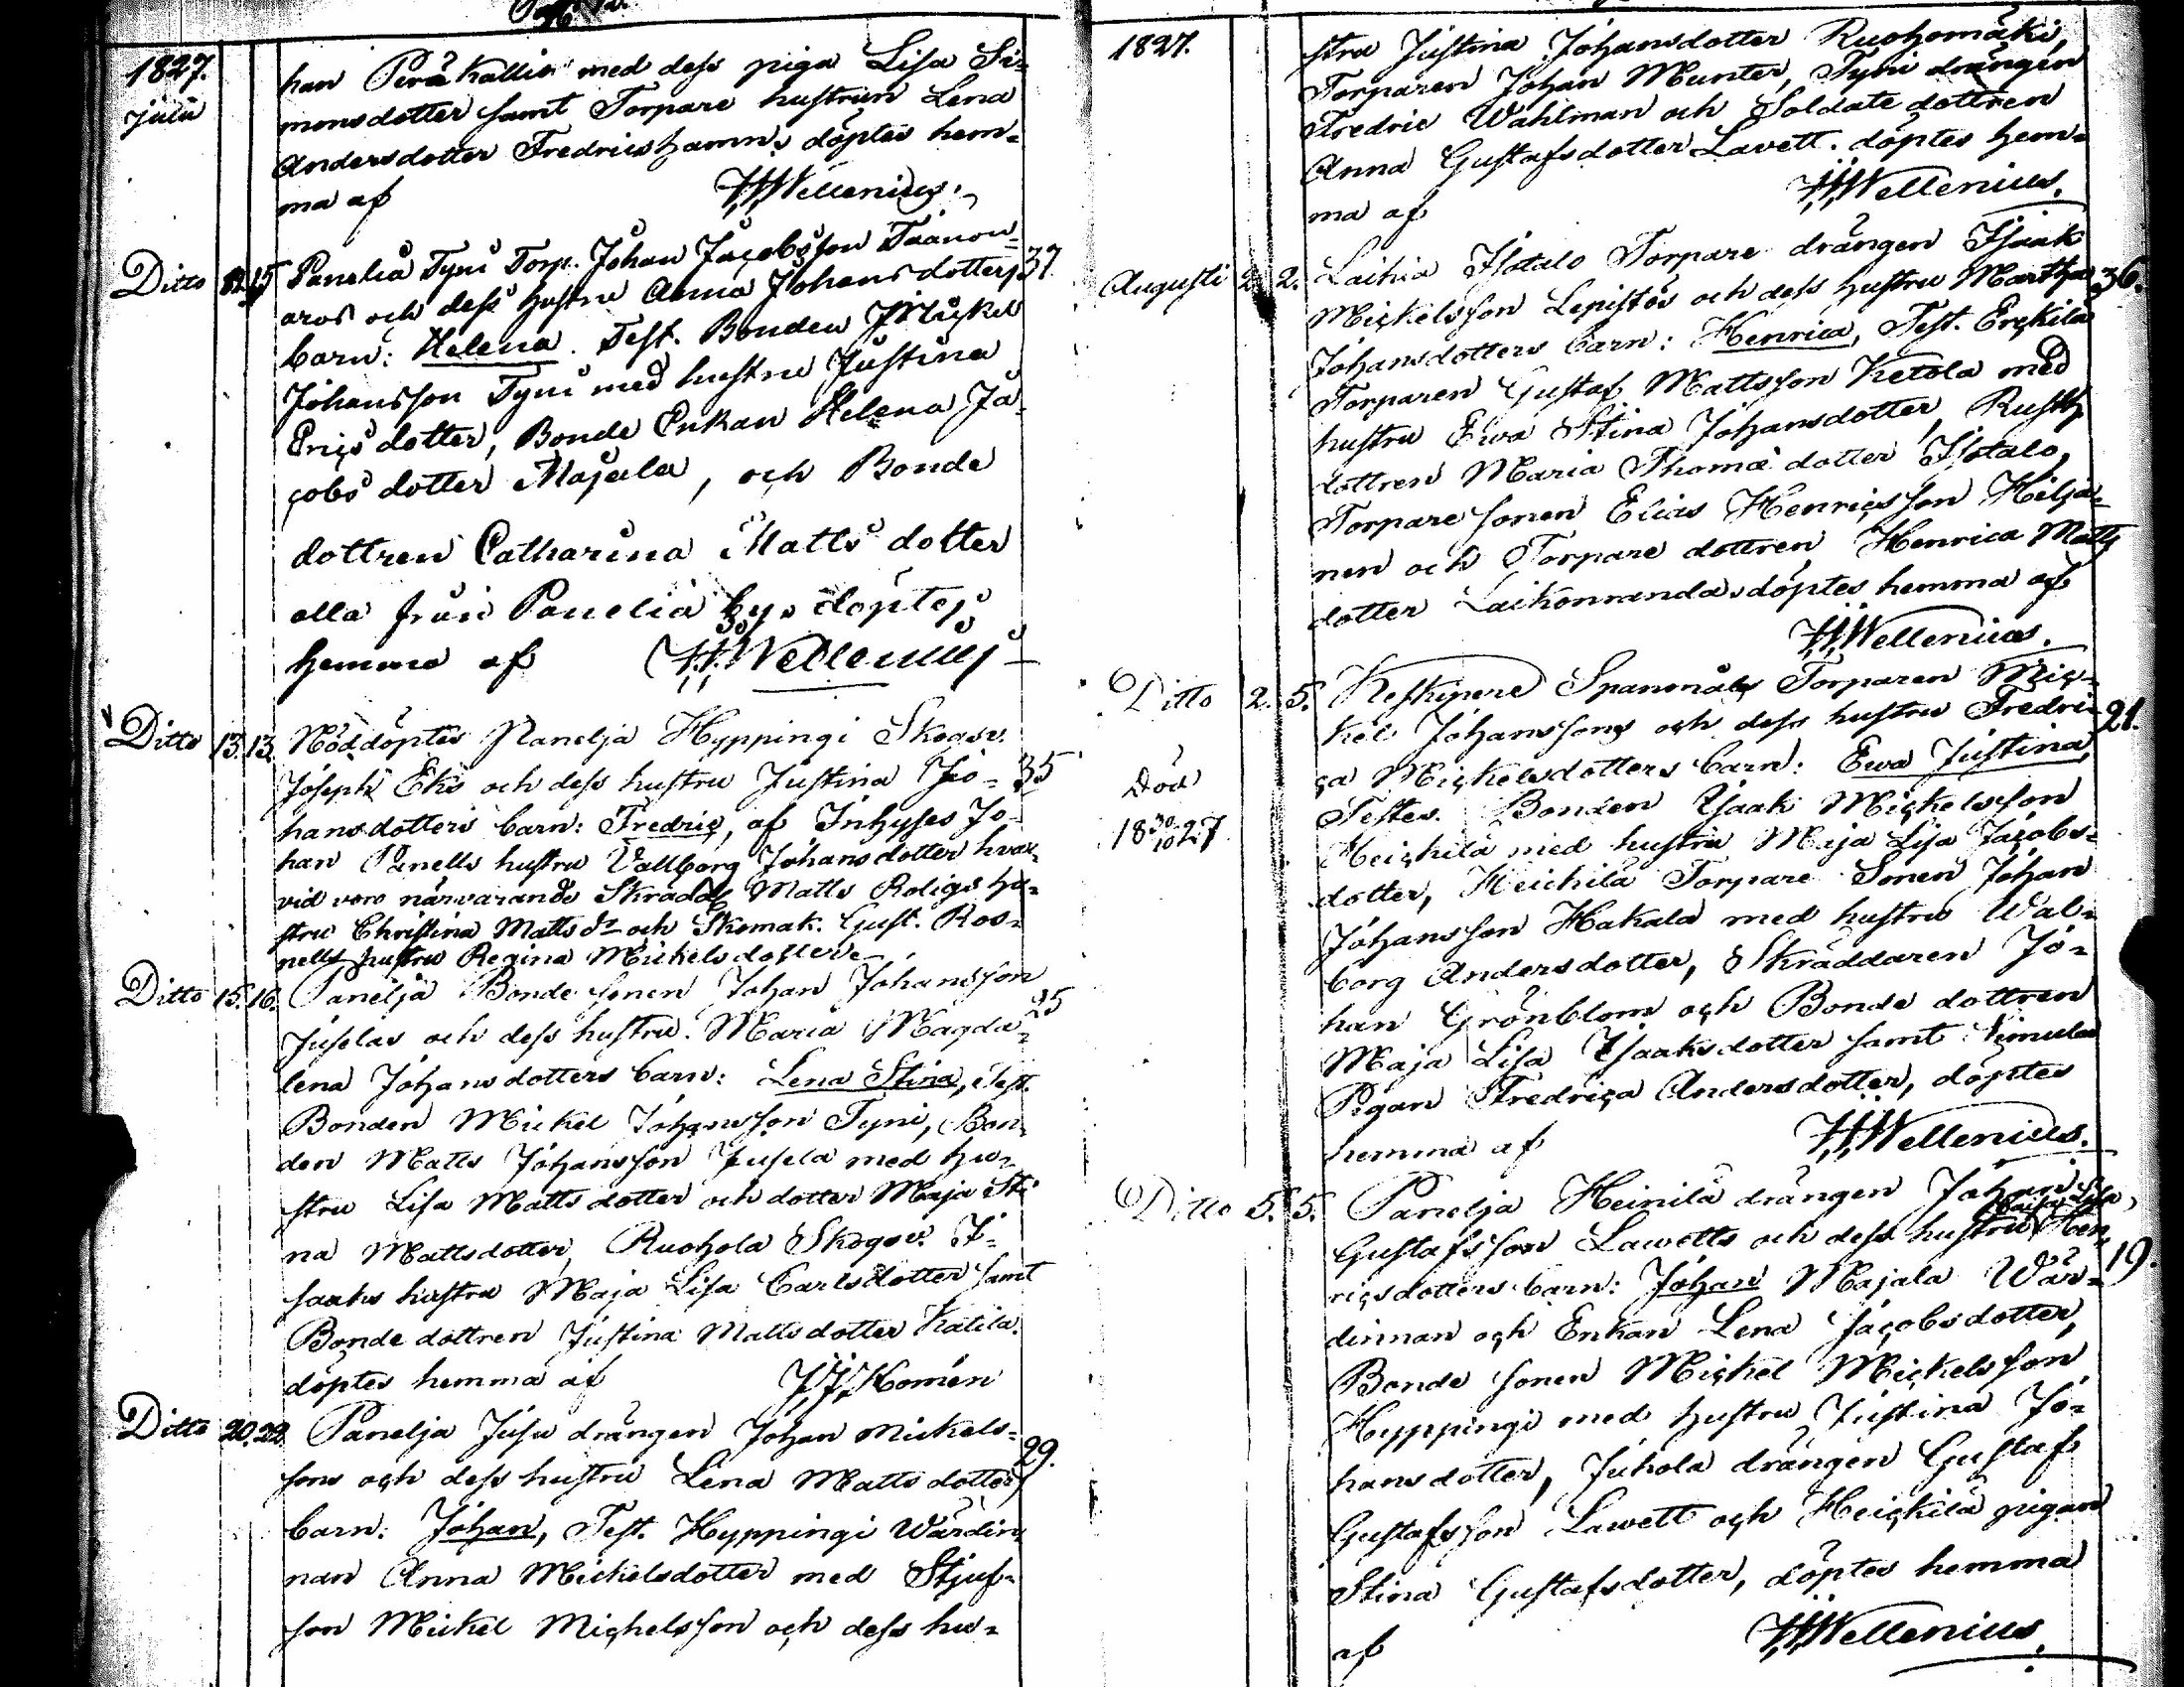 1827.
Julii
han Peräkallio med dess piga Lisa Si-
monsdotter samt Torpare hustrun Lena
Andersdotter Fredricshamn, döptes hem-
ma af HHWellenius.
Ditto 15 Panelia Tyni Torp. Johan Jacobsson Taanon- 37.
aros och dess hustru Anna Johansdotters
barn: Helena. Test. Bonden Mickel
Johansson Tyni med hustru Justina
Ericsdotter, Bonde Enkan Helena Ja-
cobsdotter Majala, och Bonde
dottren Catharina Matts dotter
alla från Panelia by, döptes
hemma af HHWellenius
Ditto 13. 13. Nöddöptes Panelja Hyppingi Skogsv.
Joseph Eks och dess hustru Justina Jo- 35
hansdotters barn: Fredric, af Inhyses Jo-
han Panells hustru Vallborg Johansdotter hvar-
vid voro närvarande Skradd. Matts Roligs hu-
stru Christina Matts dr och Skomak. Gust. Ros-
nells hustru Regina Mickelsdotter
Ditto 15. 16. Panelja Bonde sonen Johan Johansson
Juselas och dess hustru Maria Magda- 35
lena Johansdotters barn: Lena Stina, Test.
Bonden Mickel Johansson Tyni, Bon-
den Matts Johansson Jusela med hu-
stru Lisa Mattsdotter och dotter Maja Sti
na Mattsdotter, Ruohola Skogsv. I-
saaks hustru Maja Lisa Carlsdotter samt
Bonde dottren Justina Mattsdotter Katila.
döptes hemma af JJKomén
Ditto 20. 22. Panelja Jusu drängen Johan Mickels-
sons och dess hustru Lena Mattsdotters 29.
barn: Johan, Test. Hyppingi Wärdin-
nan Anna Mickelsdotter med Stjuf-
son Mickel Michelsson och dess hu-
1827.
stru Justina Johansdotter Ruohomäki,
Torparen Johan Munter, Tyni drängen
Fredric Wahlman och Soldate dottren
Anna Gustafsdotter Lavett. döptes hem-
ma af HHWellenius.
Augusti 2. 2. Laihia Isotalo Torpare drängen Isaak
Mickelsson Lepistös och dess hustru Martha 36.
Johansdotters barn: Henrica, Test. Erckilä
Torparen Gustaf Mattsson Ketola med
hustru Ewa Stina Johansdotter, Rusth.
dottren Maria Thomæ dotter Isotalo,
Torpare sonen Elias Henricsson Hilja-
nen och Torpare dottren Henrica Matts
dotter Laikonranda, döptes hemma af
HHWellenius.
Ditto 2. 5. Keskipere Spannmåls Torparen Mic-
kel Johanssons och dess hustru Fredri- 21.
ca Mickelsdotters barn: Ewa Justina,
Död
18 30/10 27
Testes. Bonden Isaak Mickelsson
Heickilä med hustru Maja Lisa Jacobs-
dotter, Heickilä Torpare Sonen Johan
Johansson Hakala med hustru Wal-
borg Andersdotter, Skräddaren Jo-
han Grönblom och Bonde dottren
Maja Lisa Isaaksdotter samt
Pigan Fredrica Andersdotter, döptes
hemma af HHWellenius.
Ditto 5. 5. Panelja Heinilä drängen Johan
Gustafsson Lawetts och dess hustru Caisa Lisa Hen-
ricsdotters barn: Johan Majala Wär- 19.
dinnan och Enkan Lena Jacobsdotter,
Bonde sonen Mickel Mickelsson
Hyppingi med hustru Justina Jo-
hansdotter, Jukola drängen Gustaf
Gustafsson Lawett och Heickilä pigan
Stina Gustafsdotter, döptes hemma
af HHWellenius.